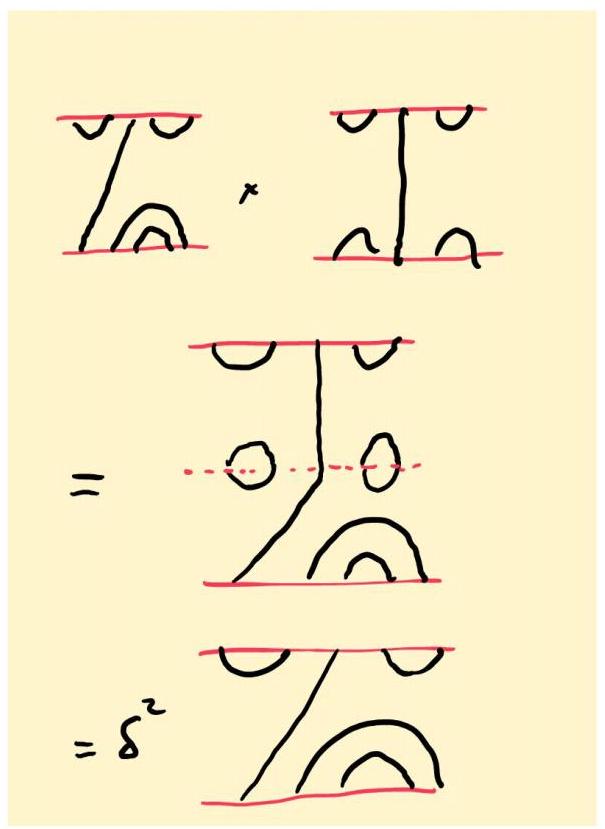 ×
=
= δ²